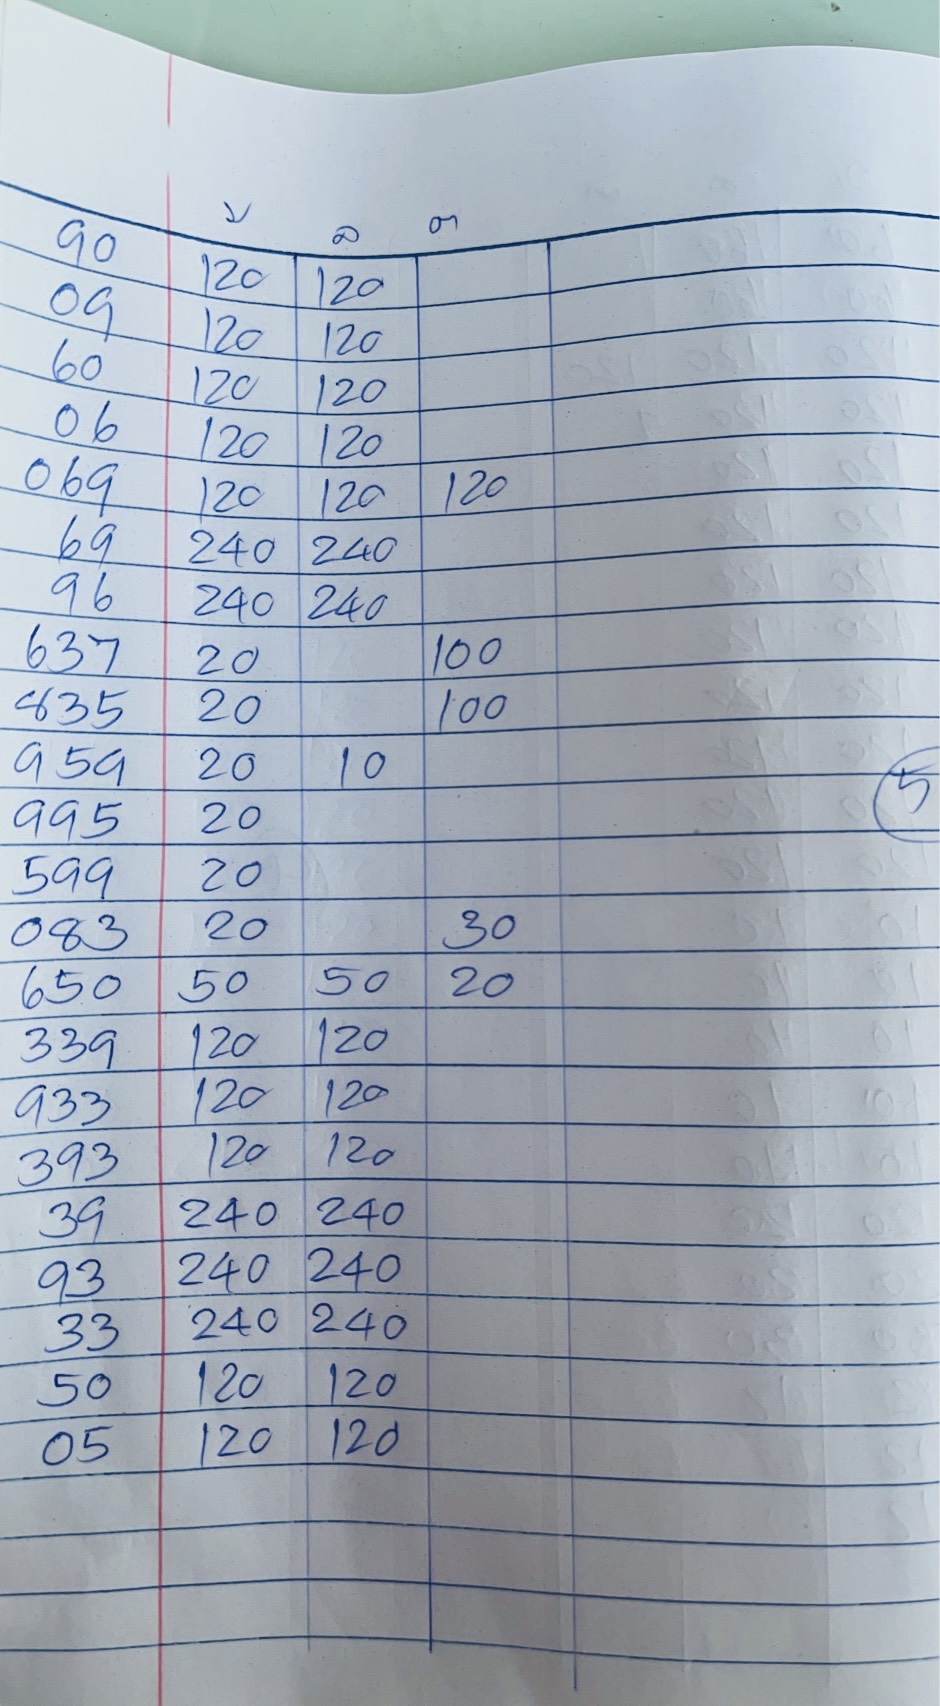 บ ล ต
90 120 120
09 120 120
60 120 120
06 120 120
069 120 120 120
69 240 240
96 240 240
637 20 100
835 20 100
959 20 10
995 20
599 20
083 20 30
650 50 50 20
339 120 120
933 120 120
393 120 120
39 240 240
93 240 240
33 240 240
50 120 120
05 120 120
5